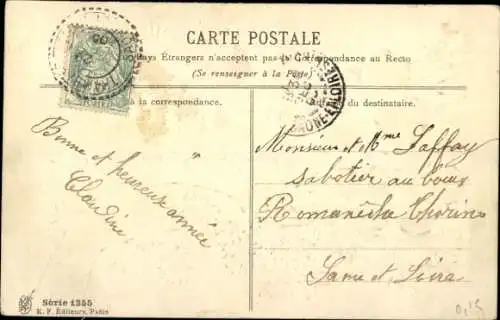 CARTE POSTALE
Pays Étrangers n'acceptent pas la Correspondance au Recto
(Se renseigner à la Poste)
à la correspondance.
du destinataire.
Bonne et heureuse année
Claudine
Monsieur et Mme Laffay
sabotier au bourg
Romanèche Thorins
Saone et Loire
Série 1355
K. F. Editeurs, Paris
0,15